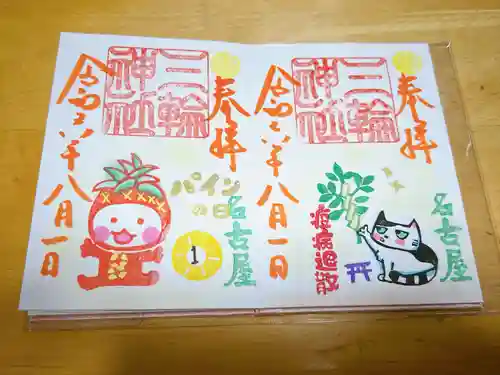 奉拝
三輪神社
令和六年八月一日
パイン
の日
1
名古屋
奉拝
三輪神社
令和六年八月一日
疫病退散
名古屋